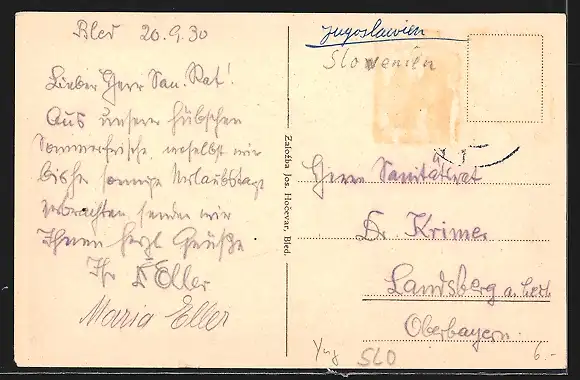 Bled 20.9.30
Lieber Herr San. Rat!
Aus unserer hübschen
Sommerfrische, woselbst wir
bisher sonnige Urlaubstage
verbrachten senden wir
Ihnen herzl. Grüße
Ihr Eller
Maria Eller
Založba Jos. Hočevar, Bled.
Jugoslawien
Slovenien
Herrn Sanitätsrat
Dr. Krimer
Landsberg a. Lech
Oberbayern.
Yug SLO
6.-